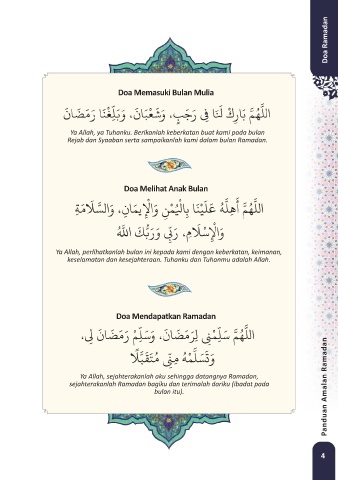 Doa Ramadan
Doa Memasuki Bulan Mulia
اللَّهُمَّ بَارِكْ لَنَا فِي رَجَبٍ، وَشَعْبَانَ، وَبَلِّغْنَا رَمَضَانَ
Ya Allah, ya Tuhanku. Berikanlah keberkatan buat kami pada bulan
Rejab dan Syaaban serta sampaikanlah kami dalam bulan Ramadan.
Doa Melihat Anak Bulan
اللَّهُمَّ أَهِلَّهُ عَلَيْنَا بِالْيُمْنِ وَالْإِيمَانِ، وَالسَّلَامَةِ
وَالْإِسْلَامِ، رَبِّي وَرَبُّكَ اللَّهُ
Ya Allah, perlihatkanlah bulan ini kepada kami dengan keberkatan, keimanan,
keselamatan dan kesejahteraan. Tuhanku dan Tuhanmu adalah Allah.
Doa Mendapatkan Ramadan
اللَّهُمَّ سَلِّمْنِي لِرَمَضَانَ، وَسَلِّمْ رَمَضَانَ لِي،
وَتَسَلَّمْهُ مِنِّي مُتَقَبَّلًا
Ya Allah, sejahterakanlah aku sehingga datangnya Ramadan,
sejahterakanlah Ramadan bagiku dan terimalah dariku (ibadat pada
bulan itu).
Panduan Amalan Ramadan
4